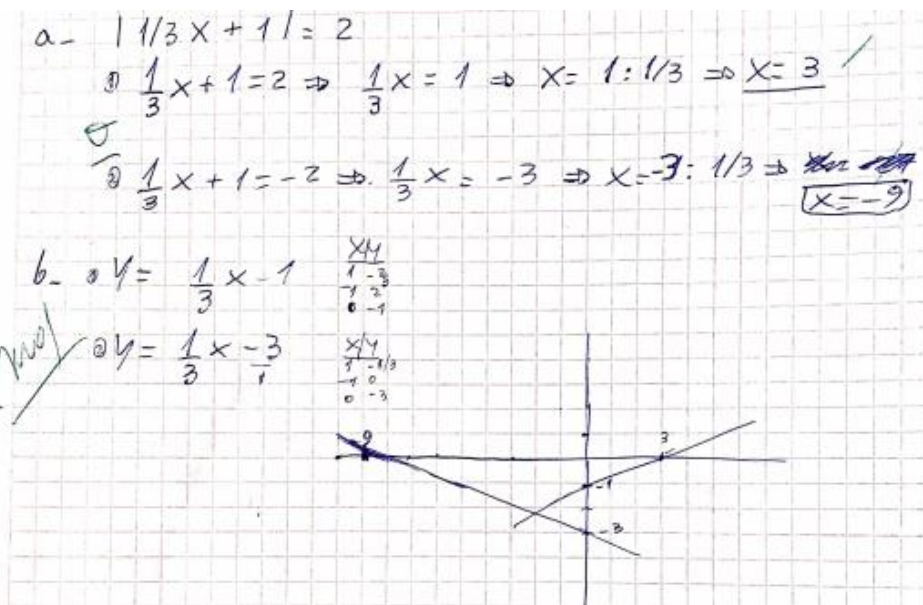 a- | 1/3 x + 1 | = 2
① 1/3 x + 1 = 2 ⇒ 1/3 x = 1 ⇒ x = 1 : 1/3 ⇒ x = 3
② 1/3 x + 1 = -2 ⇒ 1/3 x = -3 ⇒ x = -3 : 1/3 ⇒ x = -9
b- ① y = 1/3 x - 1
x/y
-1 2
0 -1
② y = 1/3 x - 3
x/y
1 -1/3
-1 0
0 -3
-9
3
-1
-3